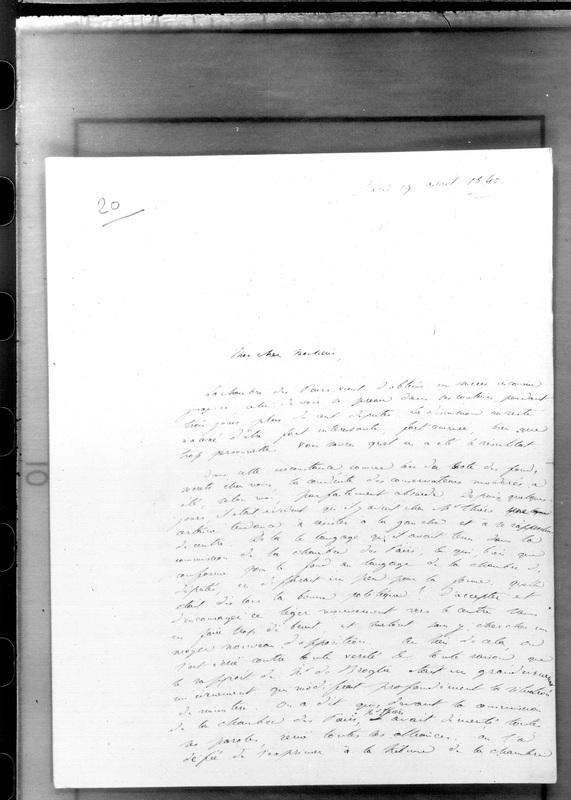 20
Paris 19 avril 1840.
Mon cher Monsieur,
La chambre des Pairs vient d'obtenir un succès inconnu
jusqu'ici celui de voir se presser dans ses couloirs pendant
trois jours plus de cent députés. La discussion au reste
d'être fort intéressante, fort animée, bien que
trop personnelle. Vous savez quel en a été le résultat.
Dans cette circonstance comme lors du vote des fonds
secrets chez vous, la conduite des conservateurs modérés, a
été selon moi, parfaitement absurde. Depuis quelques
jours, il était évident qu'il y avait chez Mr Thiers une
certaine tendance à résister à la gauche et à se rapprocher
du centre. De là le langage qu'il avait tenu dans la
commission de la chambre des Pairs, et qui, bien que
conforme pour le fond au langage de la chambre des
députés, en différait un peu pour la forme. Quelle
était dès lors la bonne politique? D'accepter et
d'encourager ce léger mouvement vers le centre sans
en faire trop de bruit et surtout sans y chercher un
moyen nouveau d'opposition. Au lieu de cela, on
s'est écrié contre toute vérité et toute raison, que
le rapport de Mr de Broglie était un grand événement
un événement qui modifiait profondément la situation
du ministère. On a dit que devant la commission
de la chambre des Pairs, Mr Thiers avait démenti toutes
ses paroles, renié toutes ses alliances. On l'a
défié de s'exprimer à la tribune de la chambre